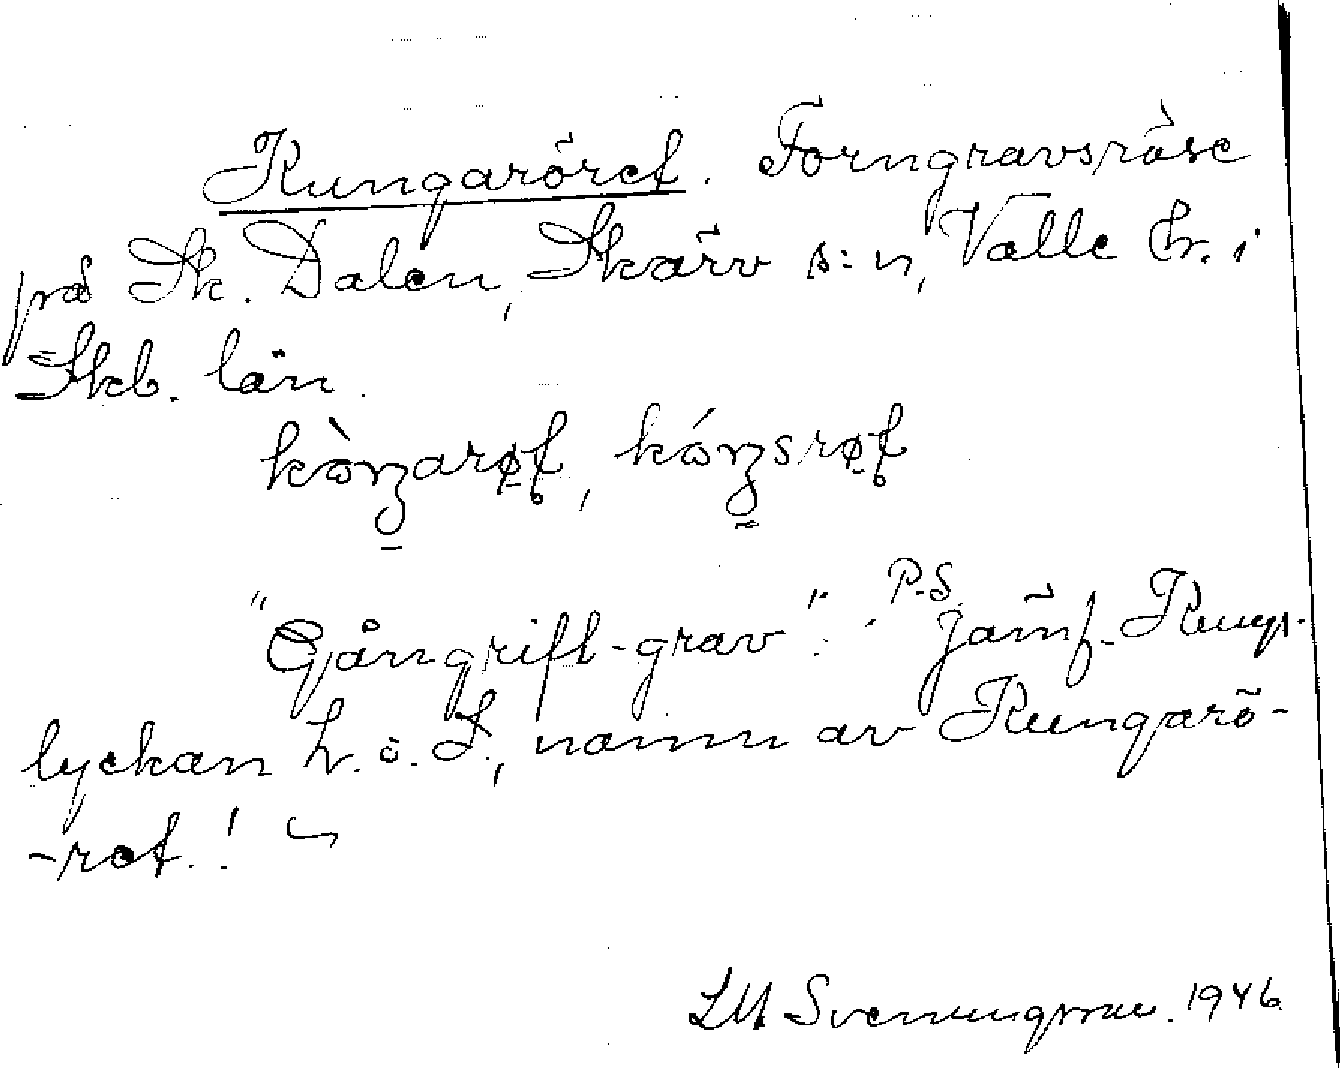 Kungaröret. Forngravsröse
på Sk. Dalen, Skärv s:n, Valle hr. i
Skb. län.
kòŋarøt, kóŋsrøt
"Gångrift-grav". P.S. Jämf. Kungs-
lyckan h. o. S., namn av Kungarö-
-ret.!
LM Svenungsson. 1946